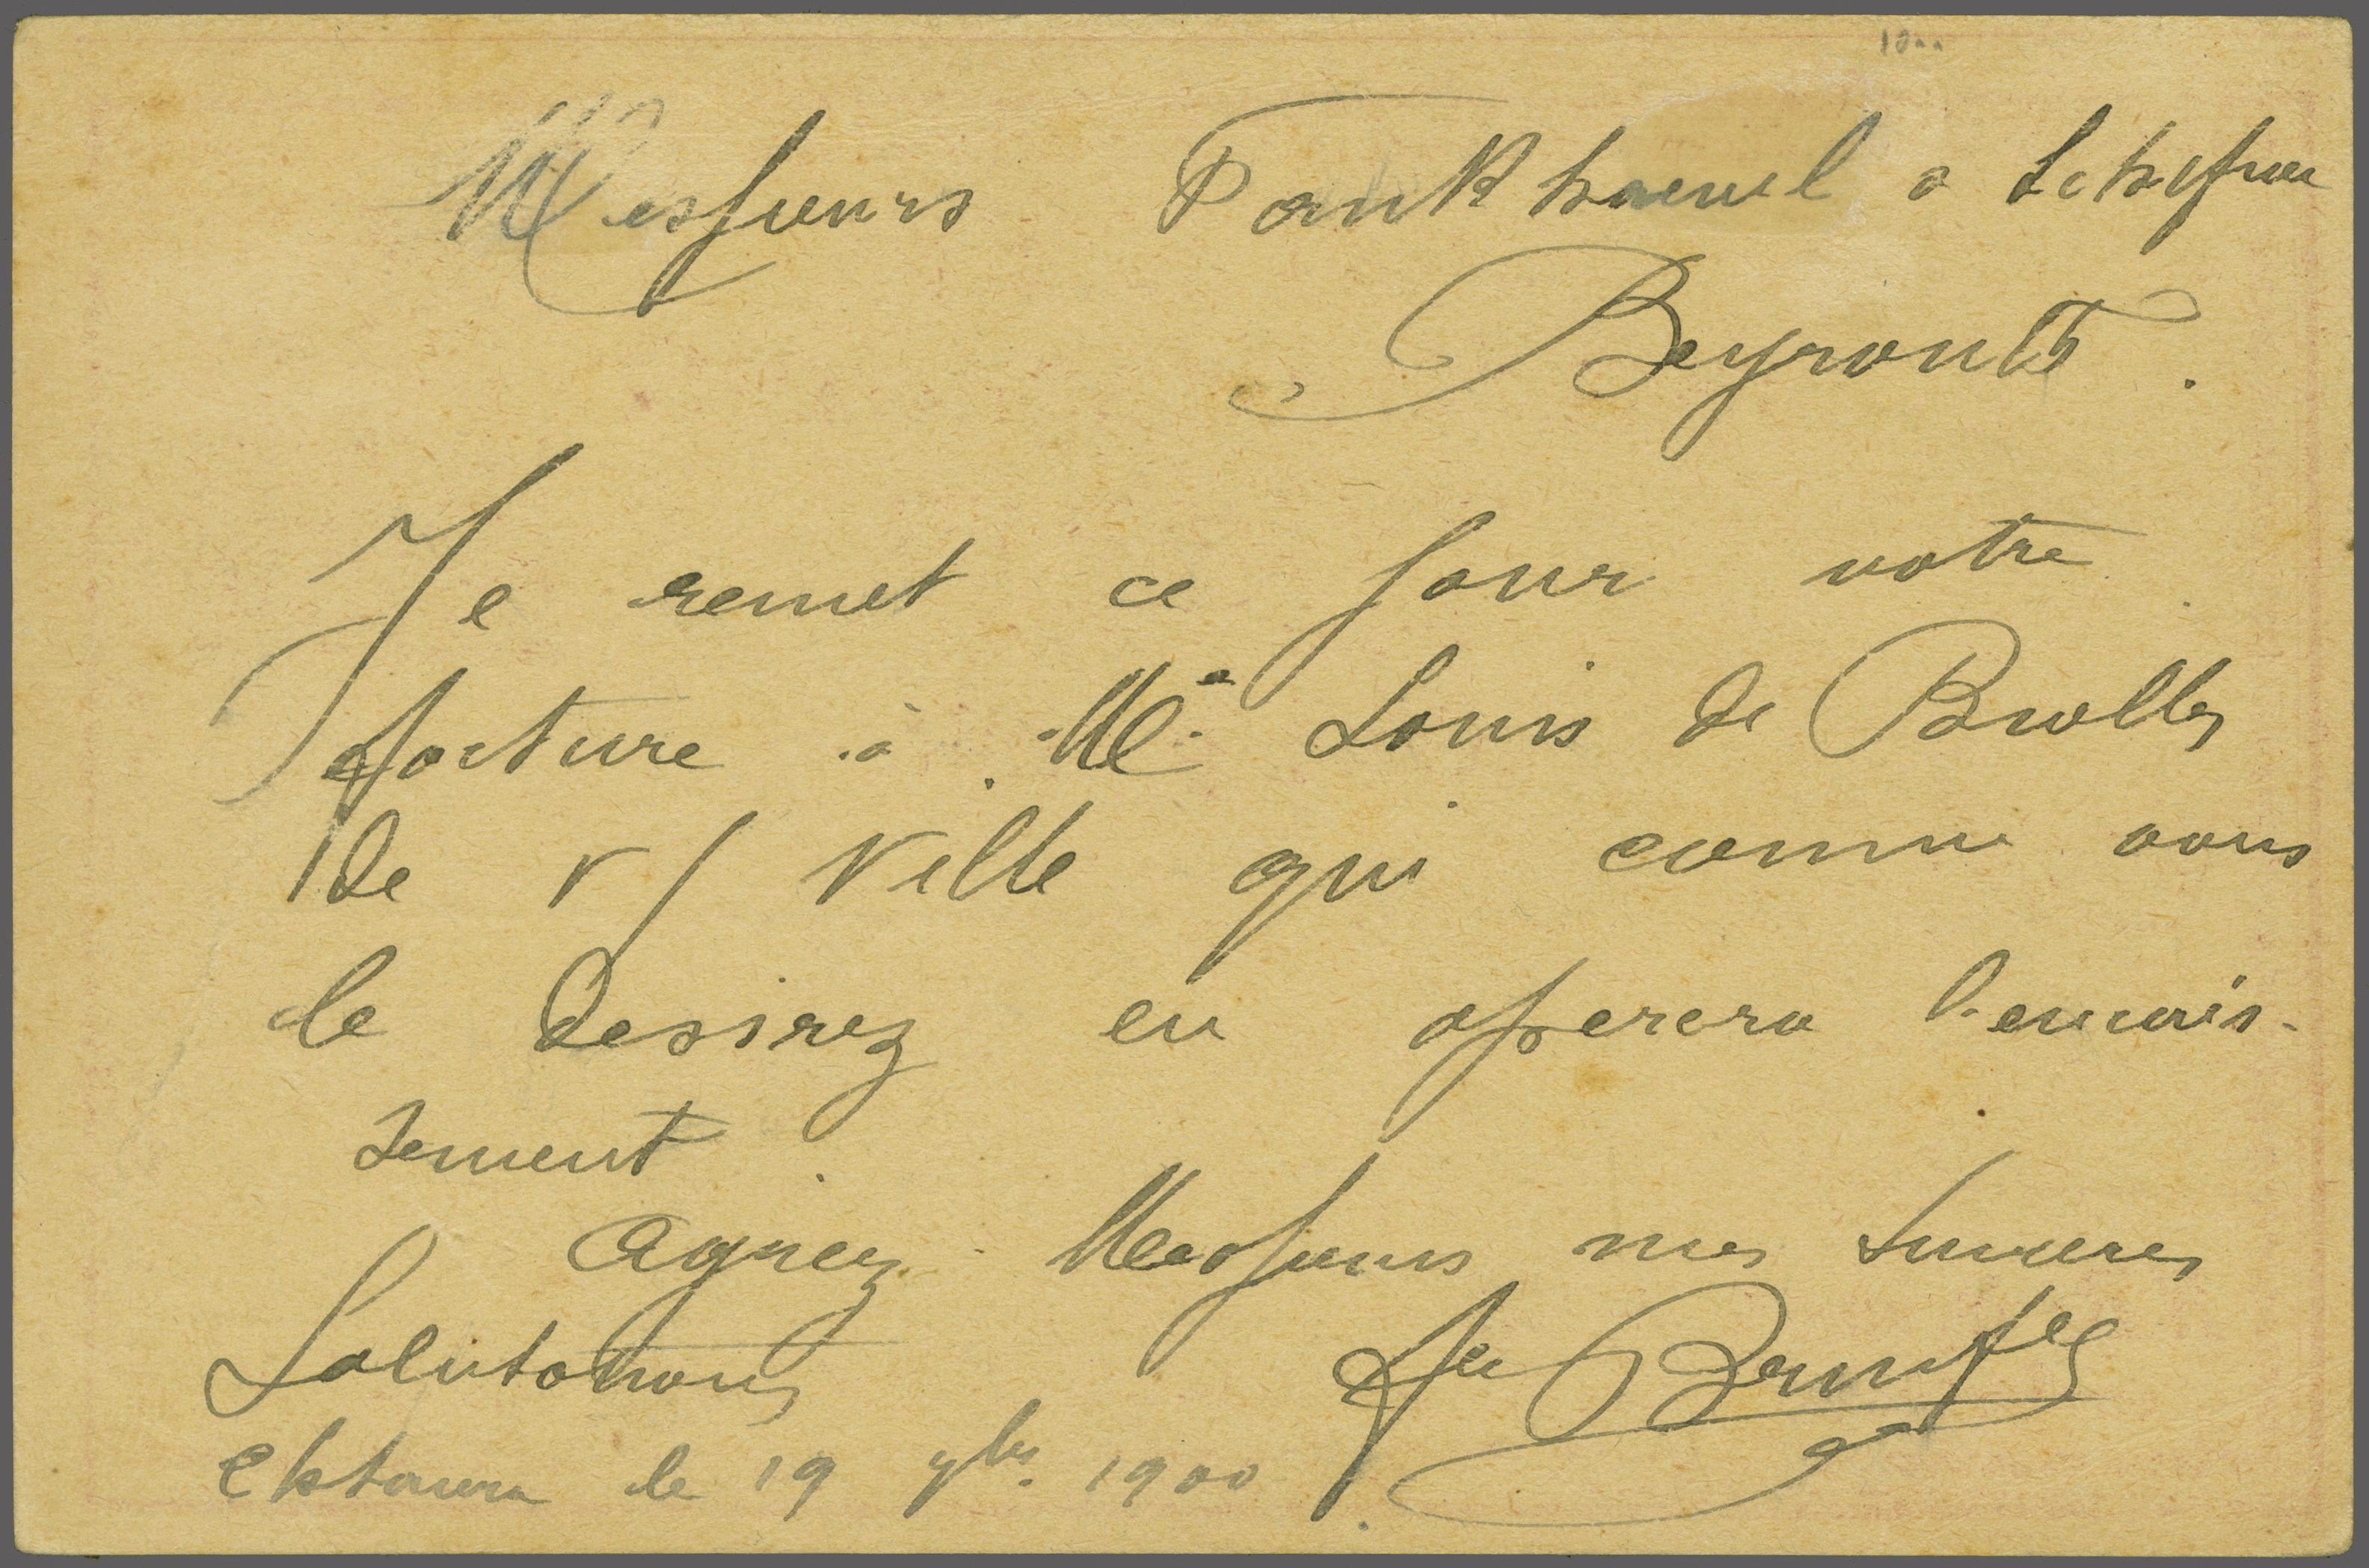 Messieurs Pankhaenel & Schifner
Beyrouth.
Je remet ce jour votre
facture à Mr. Louis de Brolles
de v/ ville qui comme vous
le desirez en operera l'encais-
sement.
Agréez Messieurs mes sinceres
Salutations
Chtaura le 19 9bre. 1900